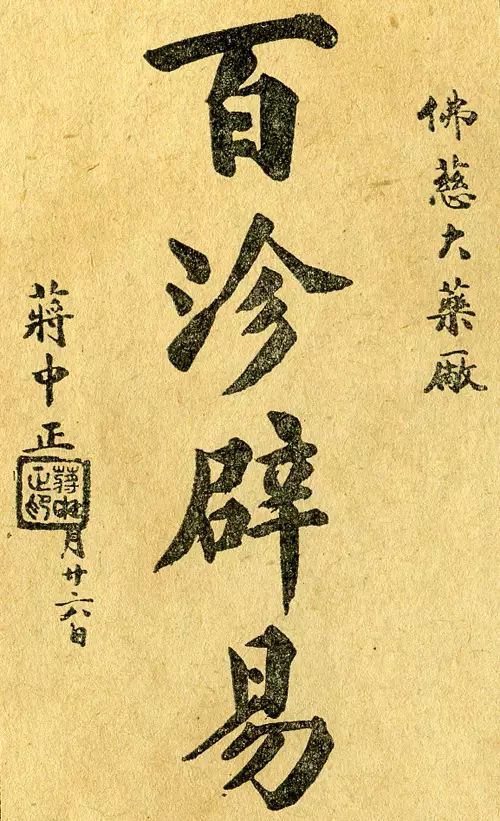 佛慈大藥厰
百沴辟易
蔣中正
蔣中
正印
月廿六日